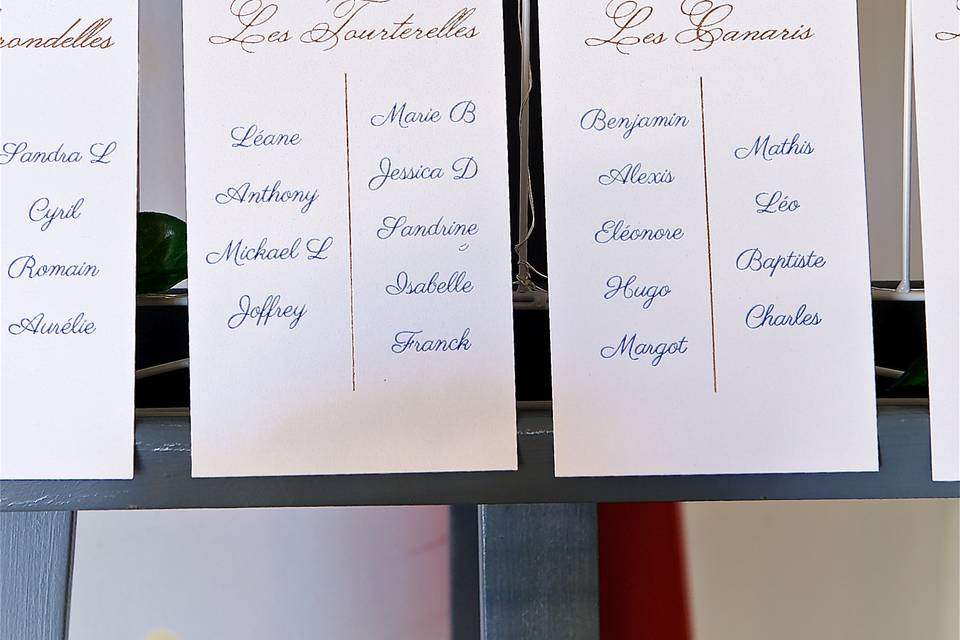 rondelles
Sandra L
Cyril
Romain
Aurélie
Les Tourterelles
Léane
Anthony
Mickael L
Joffrey
Marie B
Jessica D
Sandrine
Isabelle
Franck
Les Canaris
Benjamin
Alexis
Eléonore
Hugo
Margot
Mathis
Léo
Baptiste
Charles